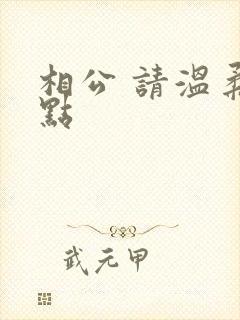 相公 請溫柔
點
武元甲